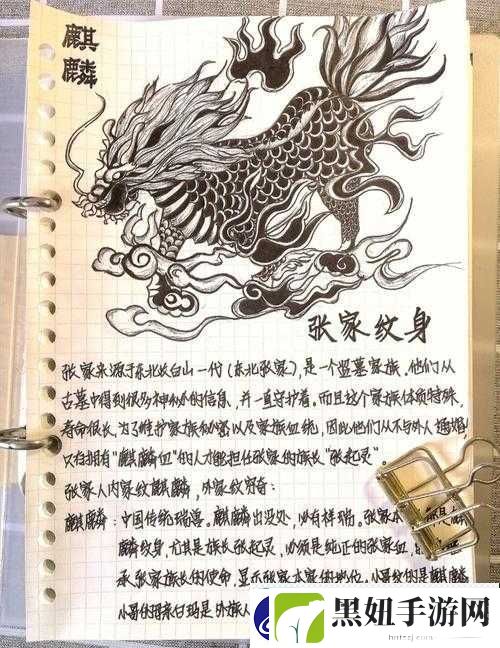 麒
麟
张家纹身
张家来源于东北长白山一代(东北张家),是一个盗墓家族,他们从
古墓中得到很多神秘的信息,并一直守护着。而且这个家族体质特殊,
寿命很长,为了维护家族秘密以及家族血统,因此他们从不与外人通婚
只有拥有“麒麟血”的人才能担任张家的族长“张起灵”。
张家人内家纹麒麟,外家纹穷奇:
麒麟:中国传统瑞兽。麒麟出没处,必有祥瑞。张家本
麟纹身,尤其是族长张起灵,必须是纯正的张家血,
承张家族长的使命,显示张家本家的地位。小哥纹的是麒麟
小哥的玛亲白玛是外族人
黑妞手游网